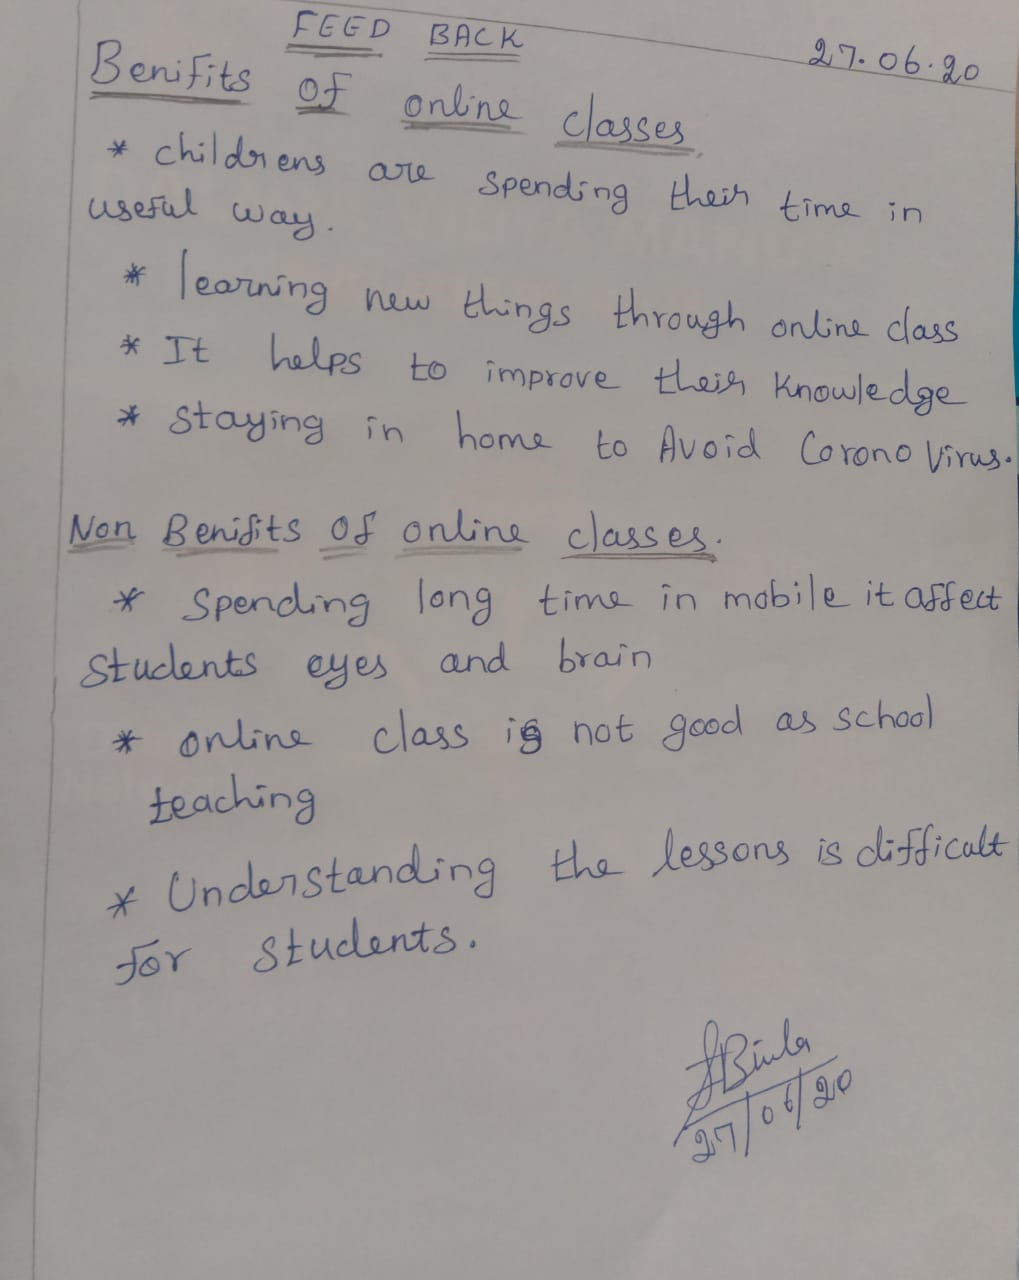 FEED BACK
27.06.20
Benifits of online classes
* childrens are spending their time in
useful way.
* learning new things through online class
* It helps to improve their Knowledge
* Staying in home to Avoid Corono Virus.
Non Benifits of online classes.
* Spending long time in mobile it affect
students eyes and brain
* online class is not good as school
teaching
* Understanding the lessons is difficult
for students.
27/06/20